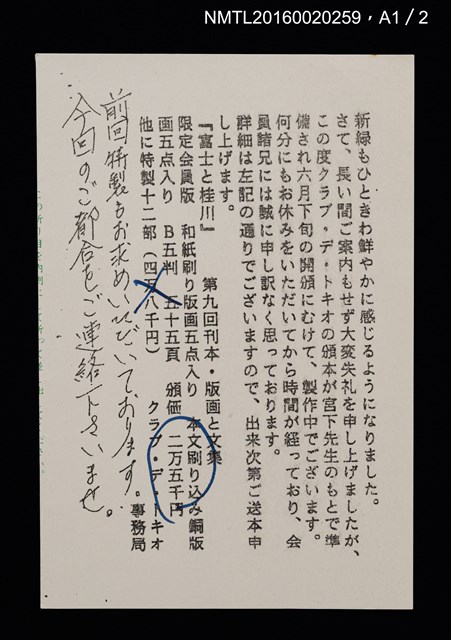 NMTL20160020259，A1／2
新緑もひときわ鮮やかに感じるようになりました。
さて、長い間ご案内もせず大変失礼を申し上げましたが、
この度クラブ・デ・トキオの頒本が宮下先生のもとで準
備され六月下旬の開頒にむけて、製作中でございます。
何分にもお休みをいただいてから時間が経っており、会
員諸兄には誠に申し訳なく思っております。
詳細は左記の通りでございますので、出来次第ご送本申
し上げます。
『富士と桂川』　第九回刊本・版画と文集
限定会員版　和紙刷り版画五点入り　本文刷り込み銅版
画五点入り　B五判　五十五頁　頒価　二万五千円
他に特製十二部（四万八千円）　クラブ・デ・トキオ
事務局
前回特製をお求めいただいております。
今回のご都合をご連絡下さいませ。